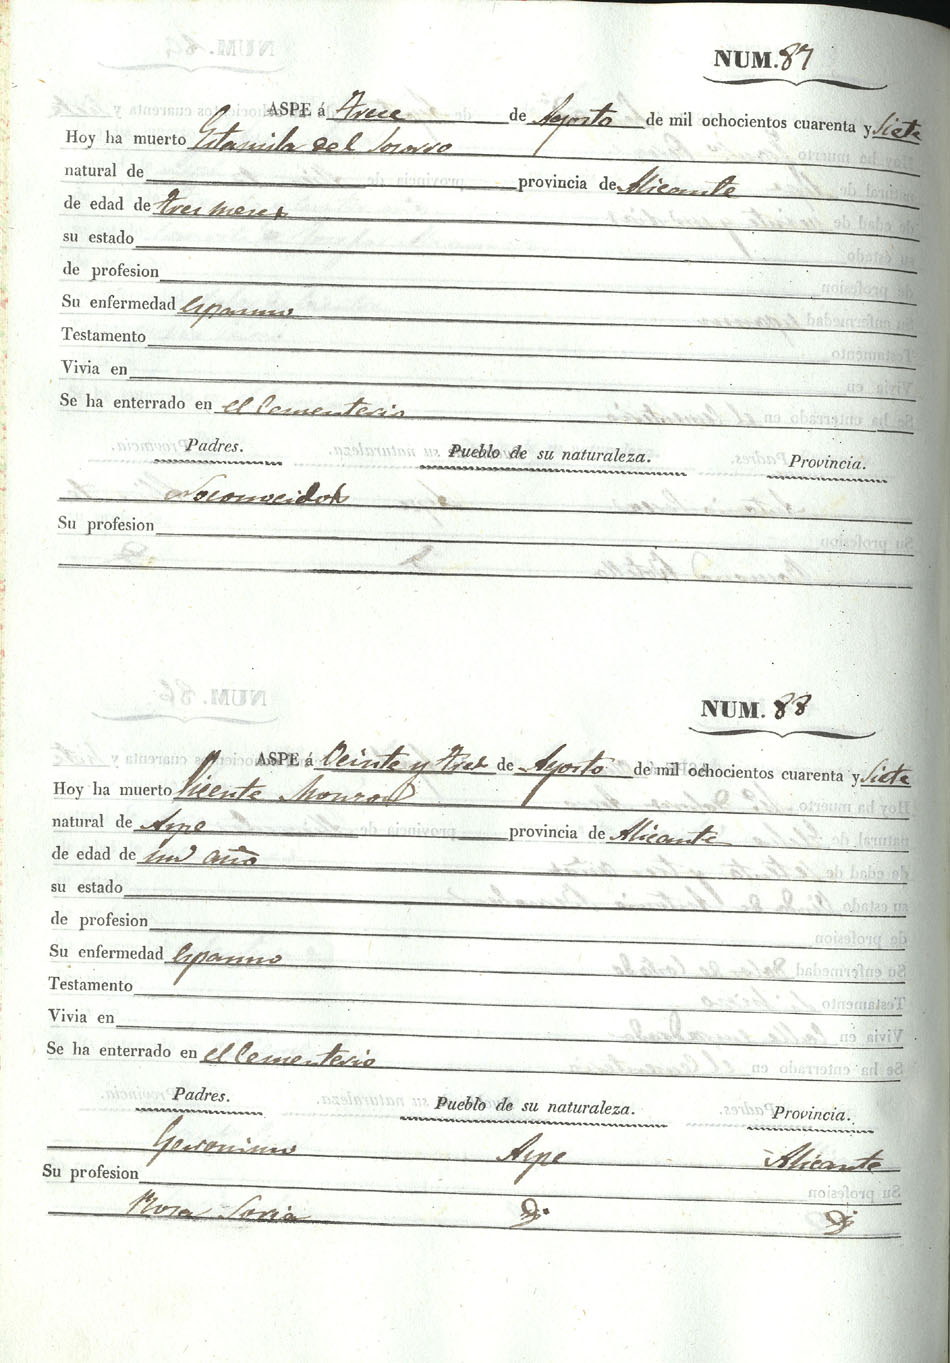 NUM. 87
ASPE á Trece de Agosto de mil ochocientos cuarenta y Siete
Hoy ha muerto Estamila del Socorro
natural de provincia de Alicante
de edad de tres meses
su estado
de profesion
Su enfermedad Espasmo
Testamento
Vivia en
Se ha enterrado en el Cementerio
Padres. Pueblo de su naturaleza. Provincia.
No conocidos
Su profesion
NUM. 88
ASPE á Veinte y Tres de Agosto de mil ochocientos cuarenta y Siete
Hoy ha muerto Vicente Monzon
natural de Aspe provincia de Alicante
de edad de un año
su estado
de profesion
Su enfermedad Espasmo
Testamento
Vivia en
Se ha enterrado en el Cementerio
Padres. Pueblo de su naturaleza. Provincia.
Geronimo Aspe Alicante
Su profesion
Rosa Soria